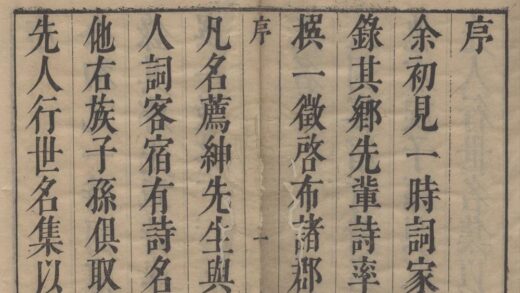 序
余初見一時詞家
錄其鄉先輩詩率
撰一徵啓布諸郡
序 一
凡名薦紳先生與
人詞客宿有詩名
他右族子孫俱取
先人行世名集以